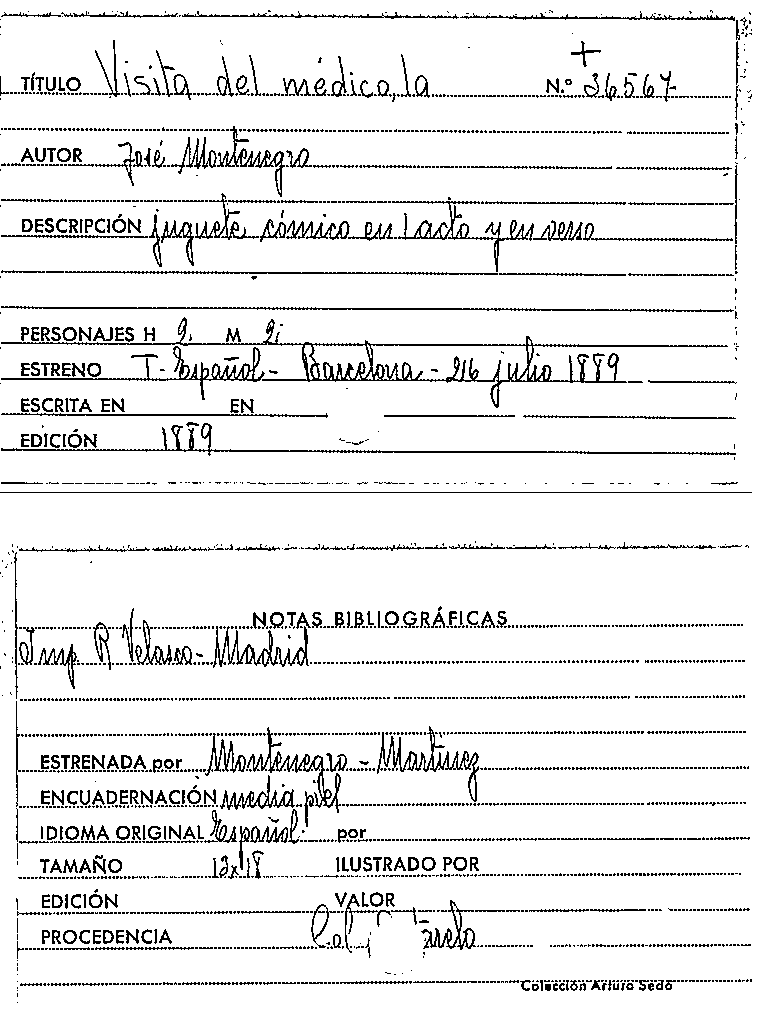 TÍTULO Visita del médico, la N.º 36567
AUTOR José Montenegro
DESCRIPCIÓN juguete cómico en 1 acto y en verso
PERSONAJES H 2. M 2.
ESTRENO T. Español - Barcelona - 26 julio 1889
ESCRITA EN EN
EDICIÓN 1889
NOTAS BIBLIOGRÁFICAS
Imp. R Velasco - Madrid
ESTRENADA por Montenegro - Martinez
ENCUADERNACIÓN media piel
IDIOMA ORIGINAL Español por
TAMAÑO 12x18 ILUSTRADO POR
EDICIÓN VALOR
PROCEDENCIA
Colección Arturo Sedó